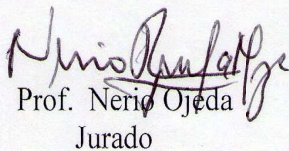 Prof. Nerio Ojeda
Jurado